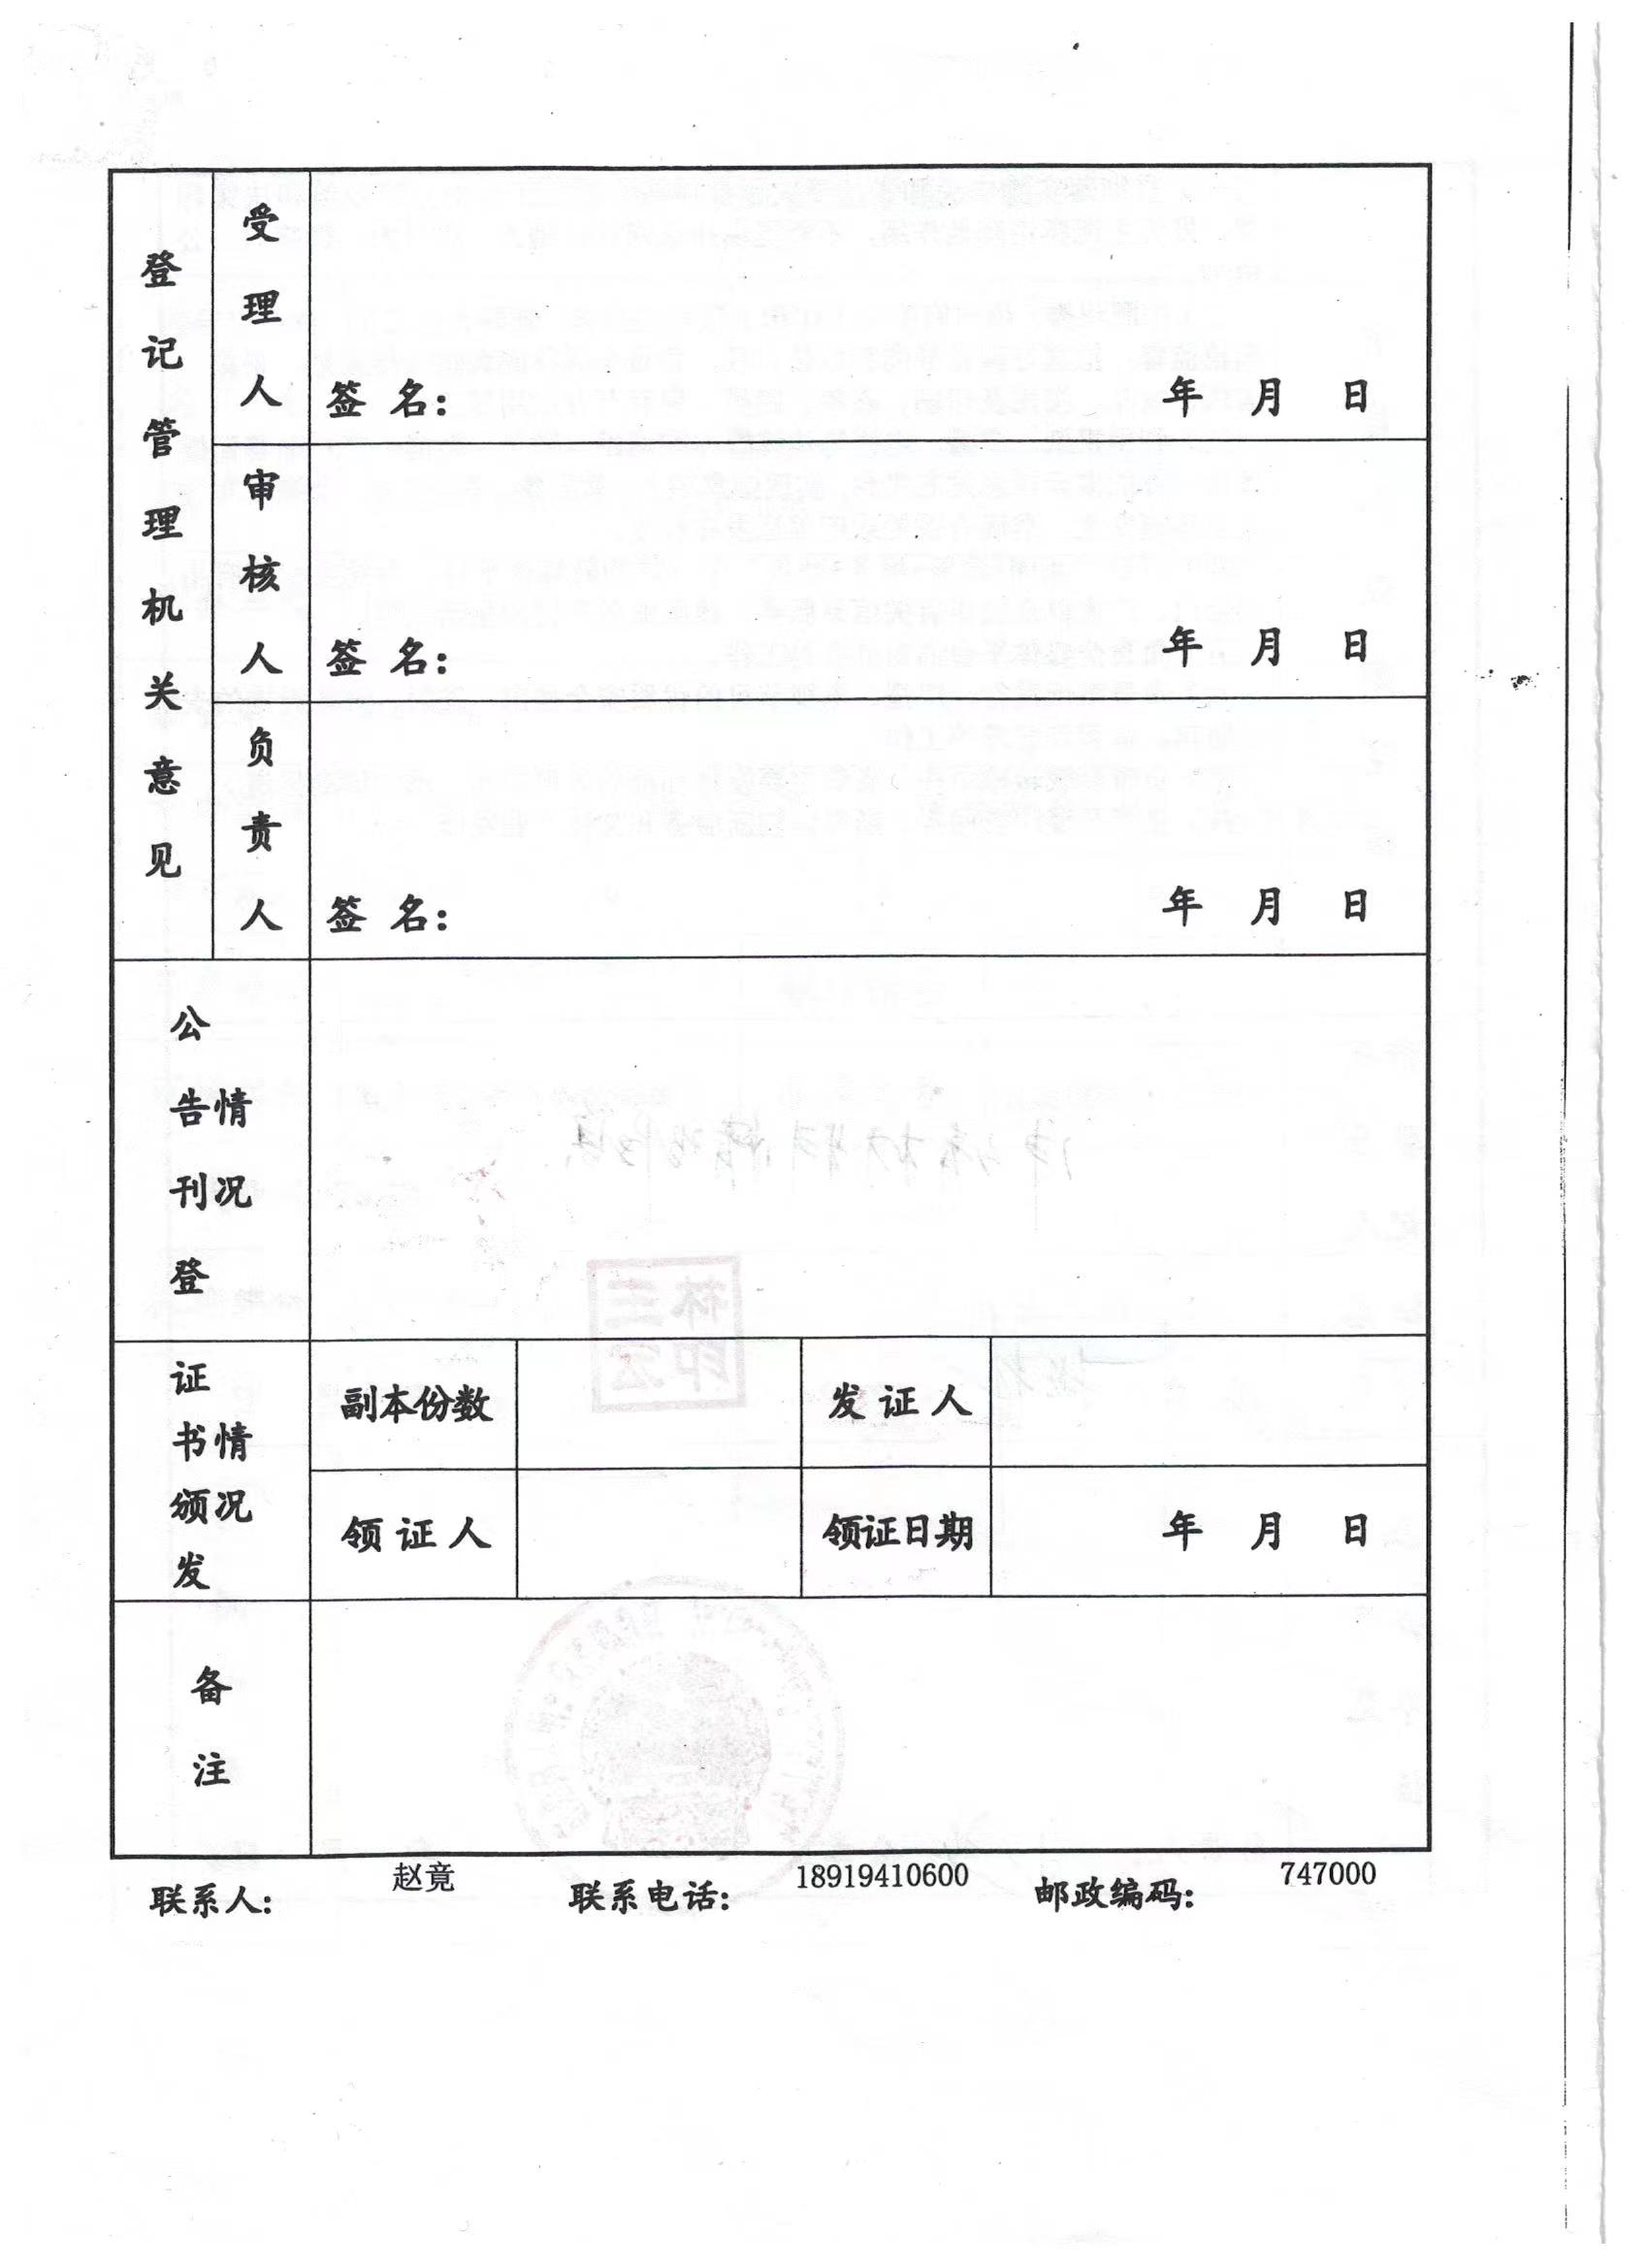 登记管理机关意见
受理人
签 名： 年 月 日
审核人
签 名： 年 月 日
负责人
签 名： 年 月 日
公告刊登情况
证书颁发情况
副本份数 发证人
领证人 领证日期 年 月 日
备注
联系人： 赵竟 联系电话： 18919410600 邮政编码： 747000